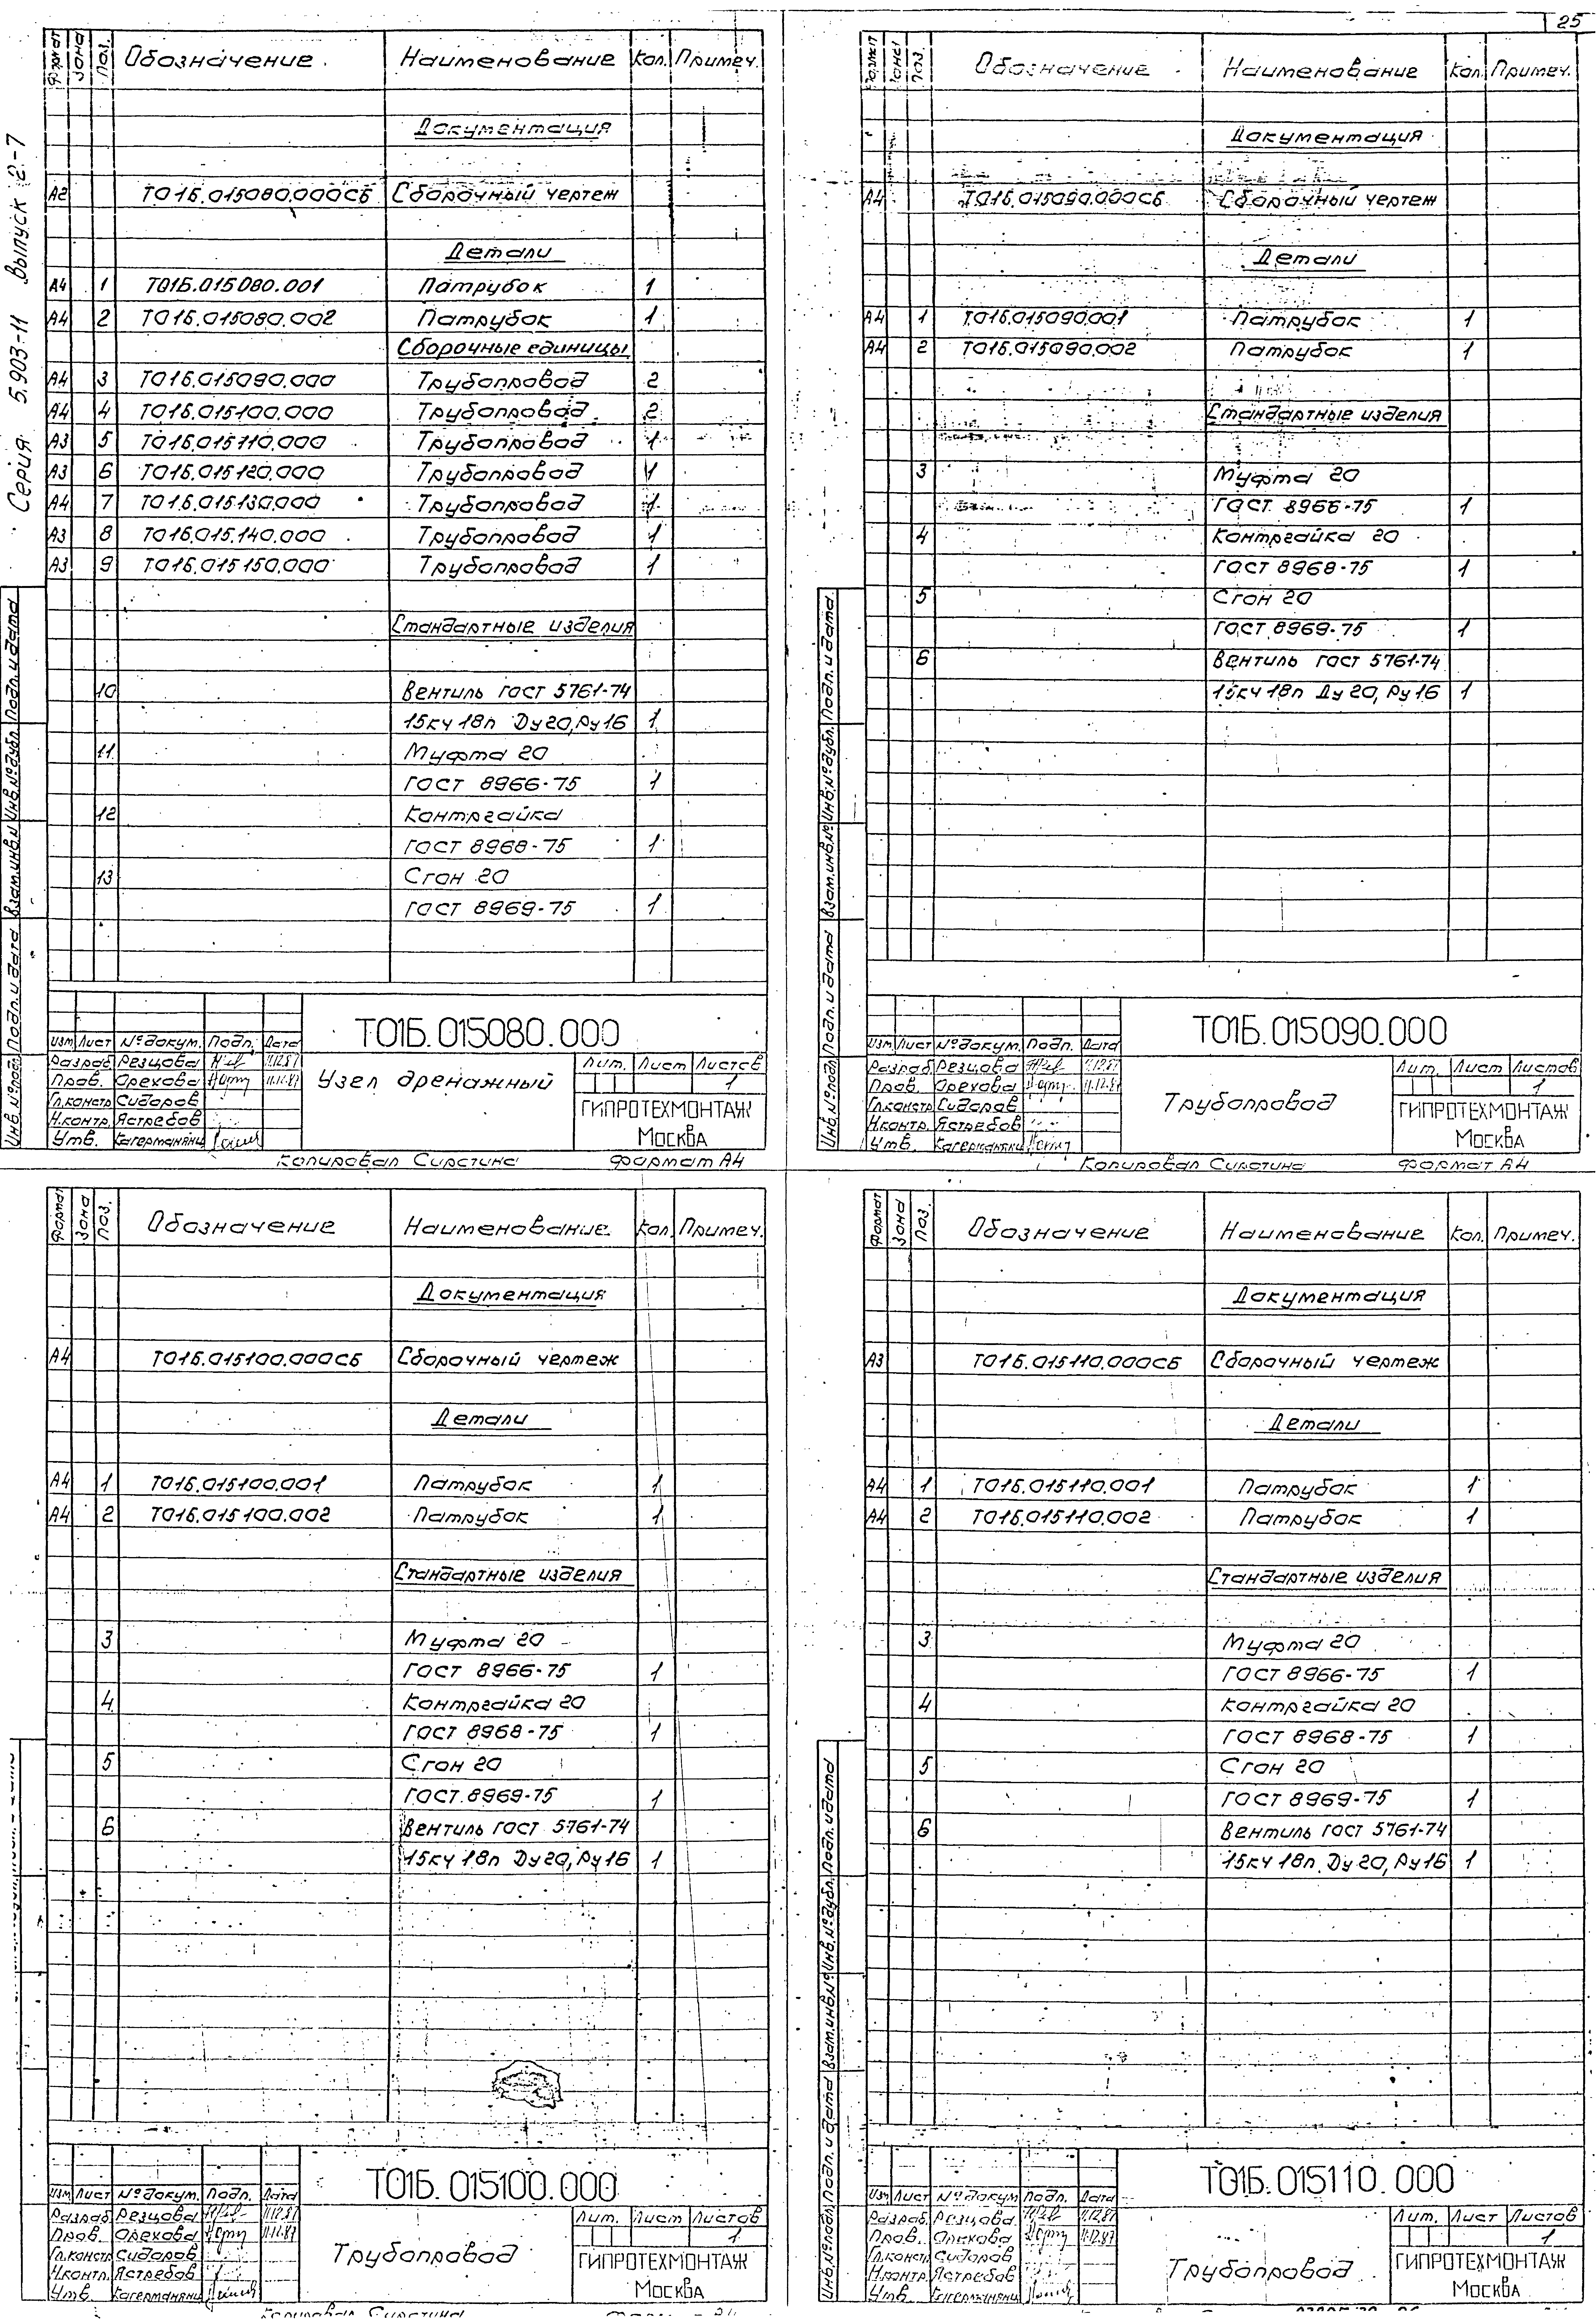 25
Серия 5.903-11 Выпуск 2-7
Формат Зона Поз. Обозначение Наименование Кол. Примеч.
Документация
А2 Т01Б.015080.000СБ Сборочный чертеж
Детали
А4 1 Т01Б.015080.001 Патрубок 1
А4 2 Т01Б.015080.002 Патрубок 1
Сборочные единицы
А4 3 Т01Б.015090.000 Трубопровод 2
А4 4 Т01Б.015100.000 Трубопровод 2
А3 5 Т01Б.015110.000 Трубопровод 1
А3 6 Т01Б.015120.000 Трубопровод 1
А4 7 Т01Б.015130.000 Трубопровод 1
А3 8 Т01Б.015.140.000 Трубопровод 1
А3 9 Т01Б.015150.000 Трубопровод 1
Стандартные изделия
10 Вентиль ГОСТ 5761-74
15кч 18п Ду 20, Ру 16 1
11 Муфта 20
ГОСТ 8966-75 1
12 Контргайка
ГОСТ 8968-75 1
13 Сгон 20
ГОСТ 8969-75 1
Инв.№подл. Подп. и дата Взам.инв.№ Инв.№дубл. Подп. и дата
Т01Б.015080.000
Изм. Лист №докум. Подп. Дата
Разраб. Резцова 11.12.87
Пров. Орехова 11.12.87
Гл.констр. Сидоров
Н.контр. Ястребов
Утв. Кагерманянц
Узел дренажный
Лит. Лист Листов
1
ГИПРОТЕХМОНТАЖ
Москва
Копировал Сирстина Формат А4
Формат Зона Поз. Обозначение Наименование Кол. Примеч.
Документация
А4 Т01Б.015090.000СБ Сборочный чертеж
Детали
А4 1 Т01Б.015090.001 Патрубок 1
А4 2 Т01Б.015090.002 Патрубок 1
Стандартные изделия
3 Муфта 20
ГОСТ 8966-75 1
4 Контргайка 20
ГОСТ 8968-75 1
5 Сгон 20
ГОСТ 8969-75 1
6 Вентиль ГОСТ 5761-74
15кч 18п Ду 20, Ру 16 1
Инв.№подл. Подп. и дата Взам.инв.№ Инв.№дубл. Подп. и дата
Т01Б.015090.000
Изм. Лист №докум. Подп. Дата
Разраб. Резцова 11.12.87
Пров. Орехова 11.12.87
Гл.констр. Сидоров
Н.контр. Ястребов
Утв. Кагерманянц
Трубопровод
Лит. Лист Листов
1
ГИПРОТЕХМОНТАЖ
Москва
Копировал Сирстина Формат А4
Формат Зона Поз. Обозначение Наименование Кол. Примеч.
Документация
А4 Т01Б.015100.000СБ Сборочный чертеж
Детали
А4 1 Т01Б.015100.001 Патрубок 1
А4 2 Т01Б.015100.002 Патрубок 1
Стандартные изделия
3 Муфта 20
ГОСТ 8966-75 1
4 Контргайка 20
ГОСТ 8968-75 1
5 Сгон 20
ГОСТ 8969-75 1
6 Вентиль ГОСТ 5761-74
15кч 18п Ду 20, Ру 16 1
Т01Б.015100.000
Изм. Лист №докум. Подп. Дата
Разраб. Резцова 11.12.87
Пров. Орехова 11.12.87
Гл.констр. Сидоров
Н.контр. Ястребов
Утв. Кагерманянц
Трубопровод
Лит. Лист Листов
1
ГИПРОТЕХМОНТАЖ
Москва
Копировал Сирстина
Формат Зона Поз. Обозначение Наименование Кол. Примеч.
Документация
А3 Т01Б.015110.000СБ Сборочный чертеж
Детали
А4 1 Т01Б.015110.001 Патрубок 1
А4 2 Т01Б.015110.002 Патрубок 1
Стандартные изделия
3 Муфта 20
ГОСТ 8966-75 1
4 Контргайка 20
ГОСТ 8968-75 1
5 Сгон 20
ГОСТ 8969-75 1
6 Вентиль ГОСТ 5761-74
15кч 18п Ду 20, Ру 16 1
Инв.№подл. Подп. и дата Взам.инв.№ Инв.№дубл. Подп. и дата
Т01Б.015110.000
Изм. Лист №докум. Подп. Дата
Разраб. Резцова 11.12.87
Пров. Орехова 11.12.87
Гл.констр. Сидоров
Н.контр. Ястребов
Утв. Кагерманянц
Трубопровод
Лит. Лист Листов
1
ГИПРОТЕХМОНТАЖ
Москва